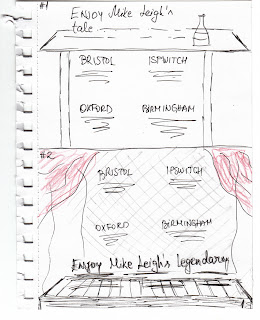 #1
Enjoy Mike Leigh's
tale
BRISTOL IPSWITCH
OXFORD BIRMINGHAM
#2
BRISTOL IPSWITCH
OXFORD BIRMINGHAM
Enjoy Mike Leigh's legendary